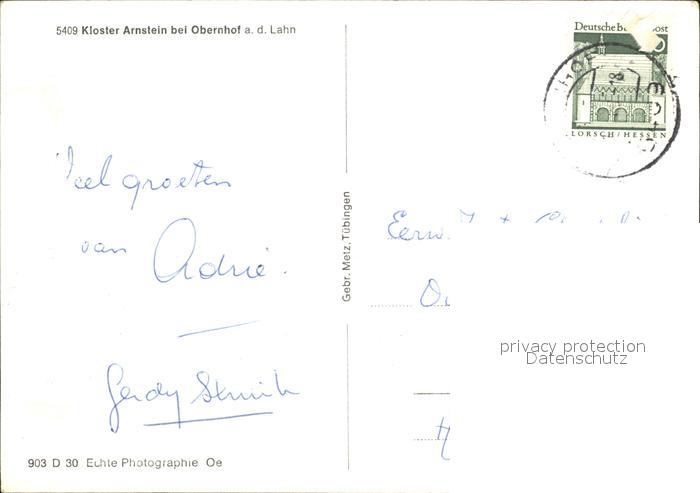 5409 Kloster Arnstein bei Obernhof a. d. Lahn
Deutsche Bu post
LORSCH/HESSEN
Veel groeten
van Adrie.
Gerdy
Gebr. Metz, Tübingen
Eerw.
privacy protection
Datenschutz
903 D 30 Echte Photographie Oe